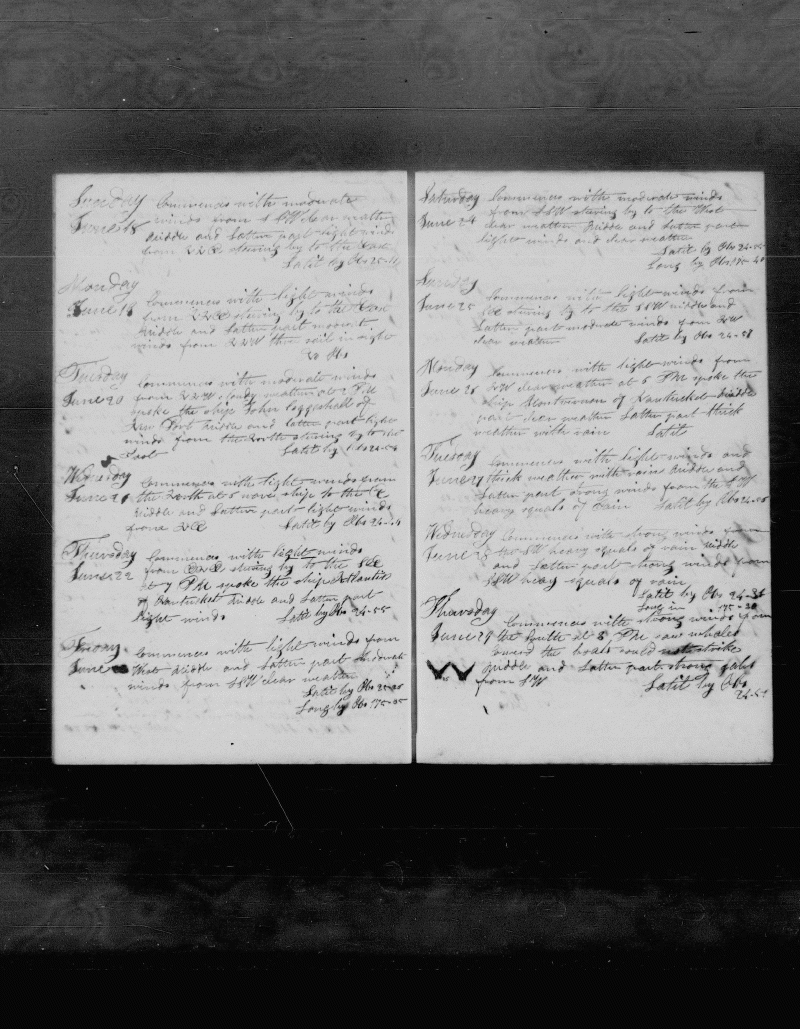 Sunday Commences with moderate
June 18 winds from SSW clear weather
Middle and Latter part light winds
from NNE steering by to the East
Latit by Obs 25-
Monday
June 19 Commences with light winds
from NNE steering by to the East
Middle and Latter part moderate
winds from NNW three sail in sight
No Obs
Tuesday Commences with moderate winds
June 20 from NNW cloudy weather at 2 PM
spoke the ship John Coggeshall of
New Port Middle and latter part light
winds from the North steering by to the
East Latit by Obs 24-
Wednesday Commences with light winds from
June 21 the North at 6 wore ship to the
Middle and Latter part light winds
from NE Latit by Obs 24-
Thursday Commences with light winds
June 22 from ENE steering by to the SE
at 7 PM spoke the ship Atlantic
of Nantucket Middle and Latter part
Light winds Latit by Obs 24-55
Friday Commences with light winds from
June that Middle and Latter part moderate
winds from SSW clear weather
Latit by Obs 25-
Long by Obs 175-05
Saturday Commences with moderate winds
June 24 from SSW steering by to the That
clear weather Middle and Latter part
lighter winds and clear weather
Latit by Obs 24-55
Long by Obs 175-40
Sunday
June 25 Commences with light winds from
steering by to the SSW Middle and
Latter part moderate winds from NW
clear weather Latit by Obs 24-
Monday Commences with light winds from
June 26 NW clear weather at 5 PM spoke the
ship of Nantucket Middle
part clear weather Latter part thick
weather with rain Latit
Tuesday Commences with light winds and
June 27 thick weather with rain Middle and
Latter part strong winds from the SW
heavy squals of rain Latit by Obs 24-
Wednesday Commences with strong winds from
June 28 the SW heavy squals of rain Middle
and Latter part strong winds from
SSW heavy squals of rain
Latit by Obs 24-
Long in 175-30
Thursday Commences with strong winds from
June 29 the South at 3 PM saw whales
lowerd the boats could not strike
Middle and Latter part strong gales
from SW Latit by Obs
24-